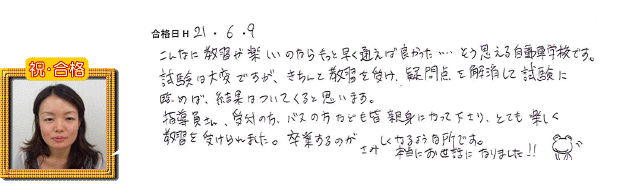 合格日 H 21・6・9
こんなに教習が楽しいのならもっと早く通えば良かった…そう思える自動車学校です。
試験は大変ですが、きちんと教習を受け、疑問点を解消して試験に
臨めば、結果はついてくると思います。
指導員さん、受付の方、バスの方なども皆親身になって下さり、とても楽しく
教習を受けられました。卒業するのがさみしくなるような所です。
本当にお世話になりました!!
祝・合格